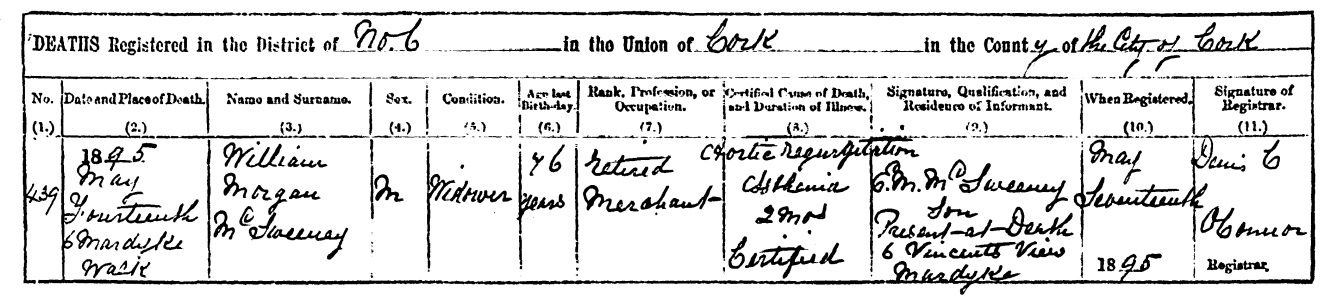 DEATHS Registered in the District of No. 6 in the Union of Cork in the County of the City of Cork
No. Date and Place of Death. Name and Surname. Sex. Condition. Age last Birth-day. Rank, Profession, or Occupation. Certified Cause of Death, and Duration of Illness. Signature, Qualification, and Residence of Informant. When Registered. Signature of Registrar.
(1.) (2.) (3.) (4.) (5.) (6.) (7.) (8.) (9.) (10.) (11.)
439
1895
May
Fourteenth
6 Mardyke
Walk
William
Morgan
McSweeney
M
Widower
76
years
Retired
Merchant
Aortic Regurgitation
Asthenia
2 mos
Certified
McSweeney
Son
Present at Death
6 Vincents View
Mardyke
May
Seventeenth
1895
Denis C
O'Connor
Registrar.